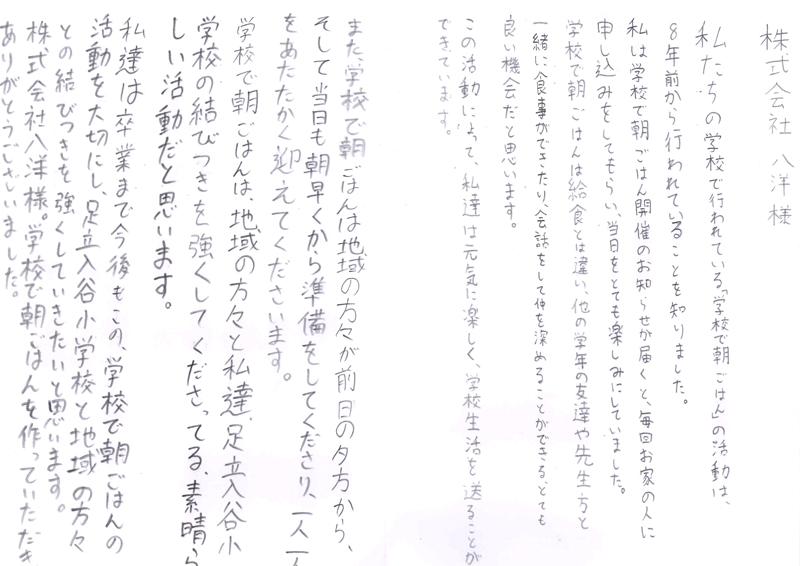 株式会社 八洋様
私たちの学校で行われている「学校で朝ごはん」の活動は、
8年前から行われていることを知りました。
私は学校で朝ごはん開催のお知らせが届くと、毎回お家の人に
申し込みをしてもらい、当日をとても楽しみにしていました。
学校で朝ごはんは給食とは違い、他の学年の友達や先生方と
一緒に食事ができたり、会話をして仲を深めることができる、とても
良い機会だと思います。
この活動によって、私達は元気に楽しく、学校生活を送ることが
できています。
また、学校で朝ごはんは地域の方々が前日の夕方から、
そして当日も朝早くから準備をしてくださり、一人一人
をあたたかく迎えてくださいます。
学校で朝ごはんは、地域の方々と私達、足立入谷小
学校の結びつきを強くしてくださってる、素晴ら
しい活動だと思います。
私達は卒業まで今後もこの、学校で朝ごはんの
活動を大切にし、足立入谷小学校と地域の方々
との結びつきを強くしていきたいと思います。
株式会社八洋様。学校で朝ごはんを作っていただき
ありがとうございました。